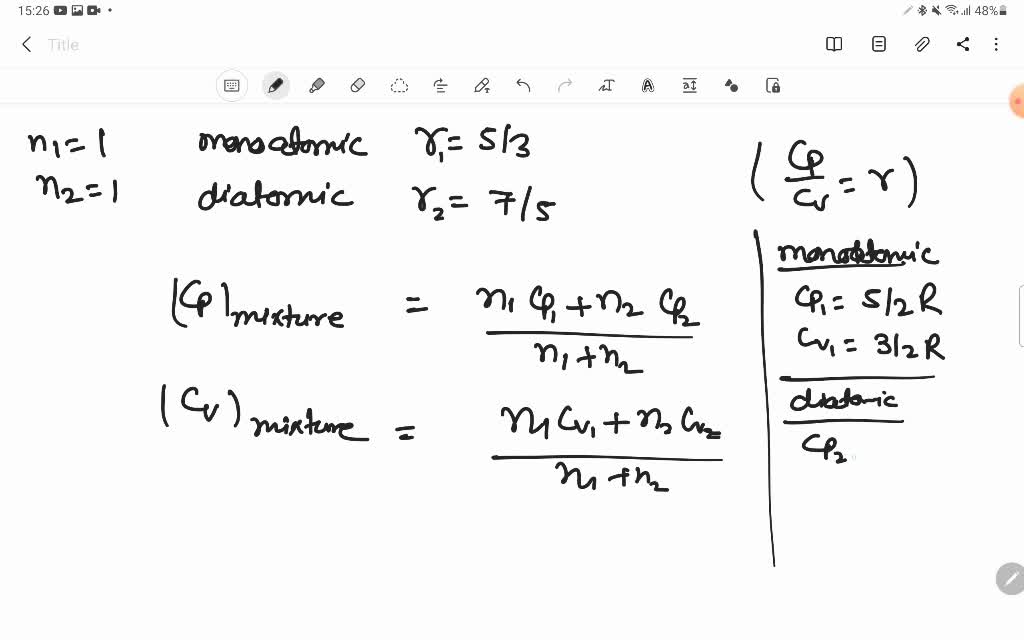 15:26 48%
Title
n₁ = 1 monoatomic γ₁ = 5/3
n₂ = 1 diatomic γ₂ = 7/5
(Cp/Cv = γ)
(Cp)mixture = n₁ Cp₁ + n₂ Cp₂
n₁ + n₂
(Cv)mixture = n₁ Cv₁ + n₂ Cv₂
n₁ + n₂
monoatomic
Cp₁ = 5/2 R
Cv₁ = 3/2 R
diatomic
Cp₂